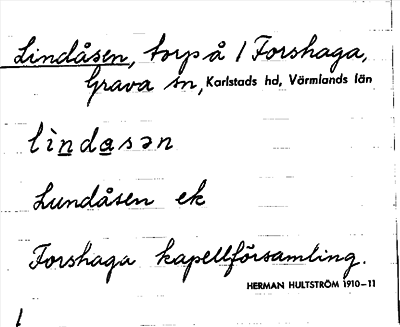 Lindåsen, torp å 1 Forshaga,
Grava sn, Karlstads hd, Värmlands län
lìndasən
Lundåsen ek
Forshaga kapellförsamling.
HERMAN HULTSTRÖM 1910–11